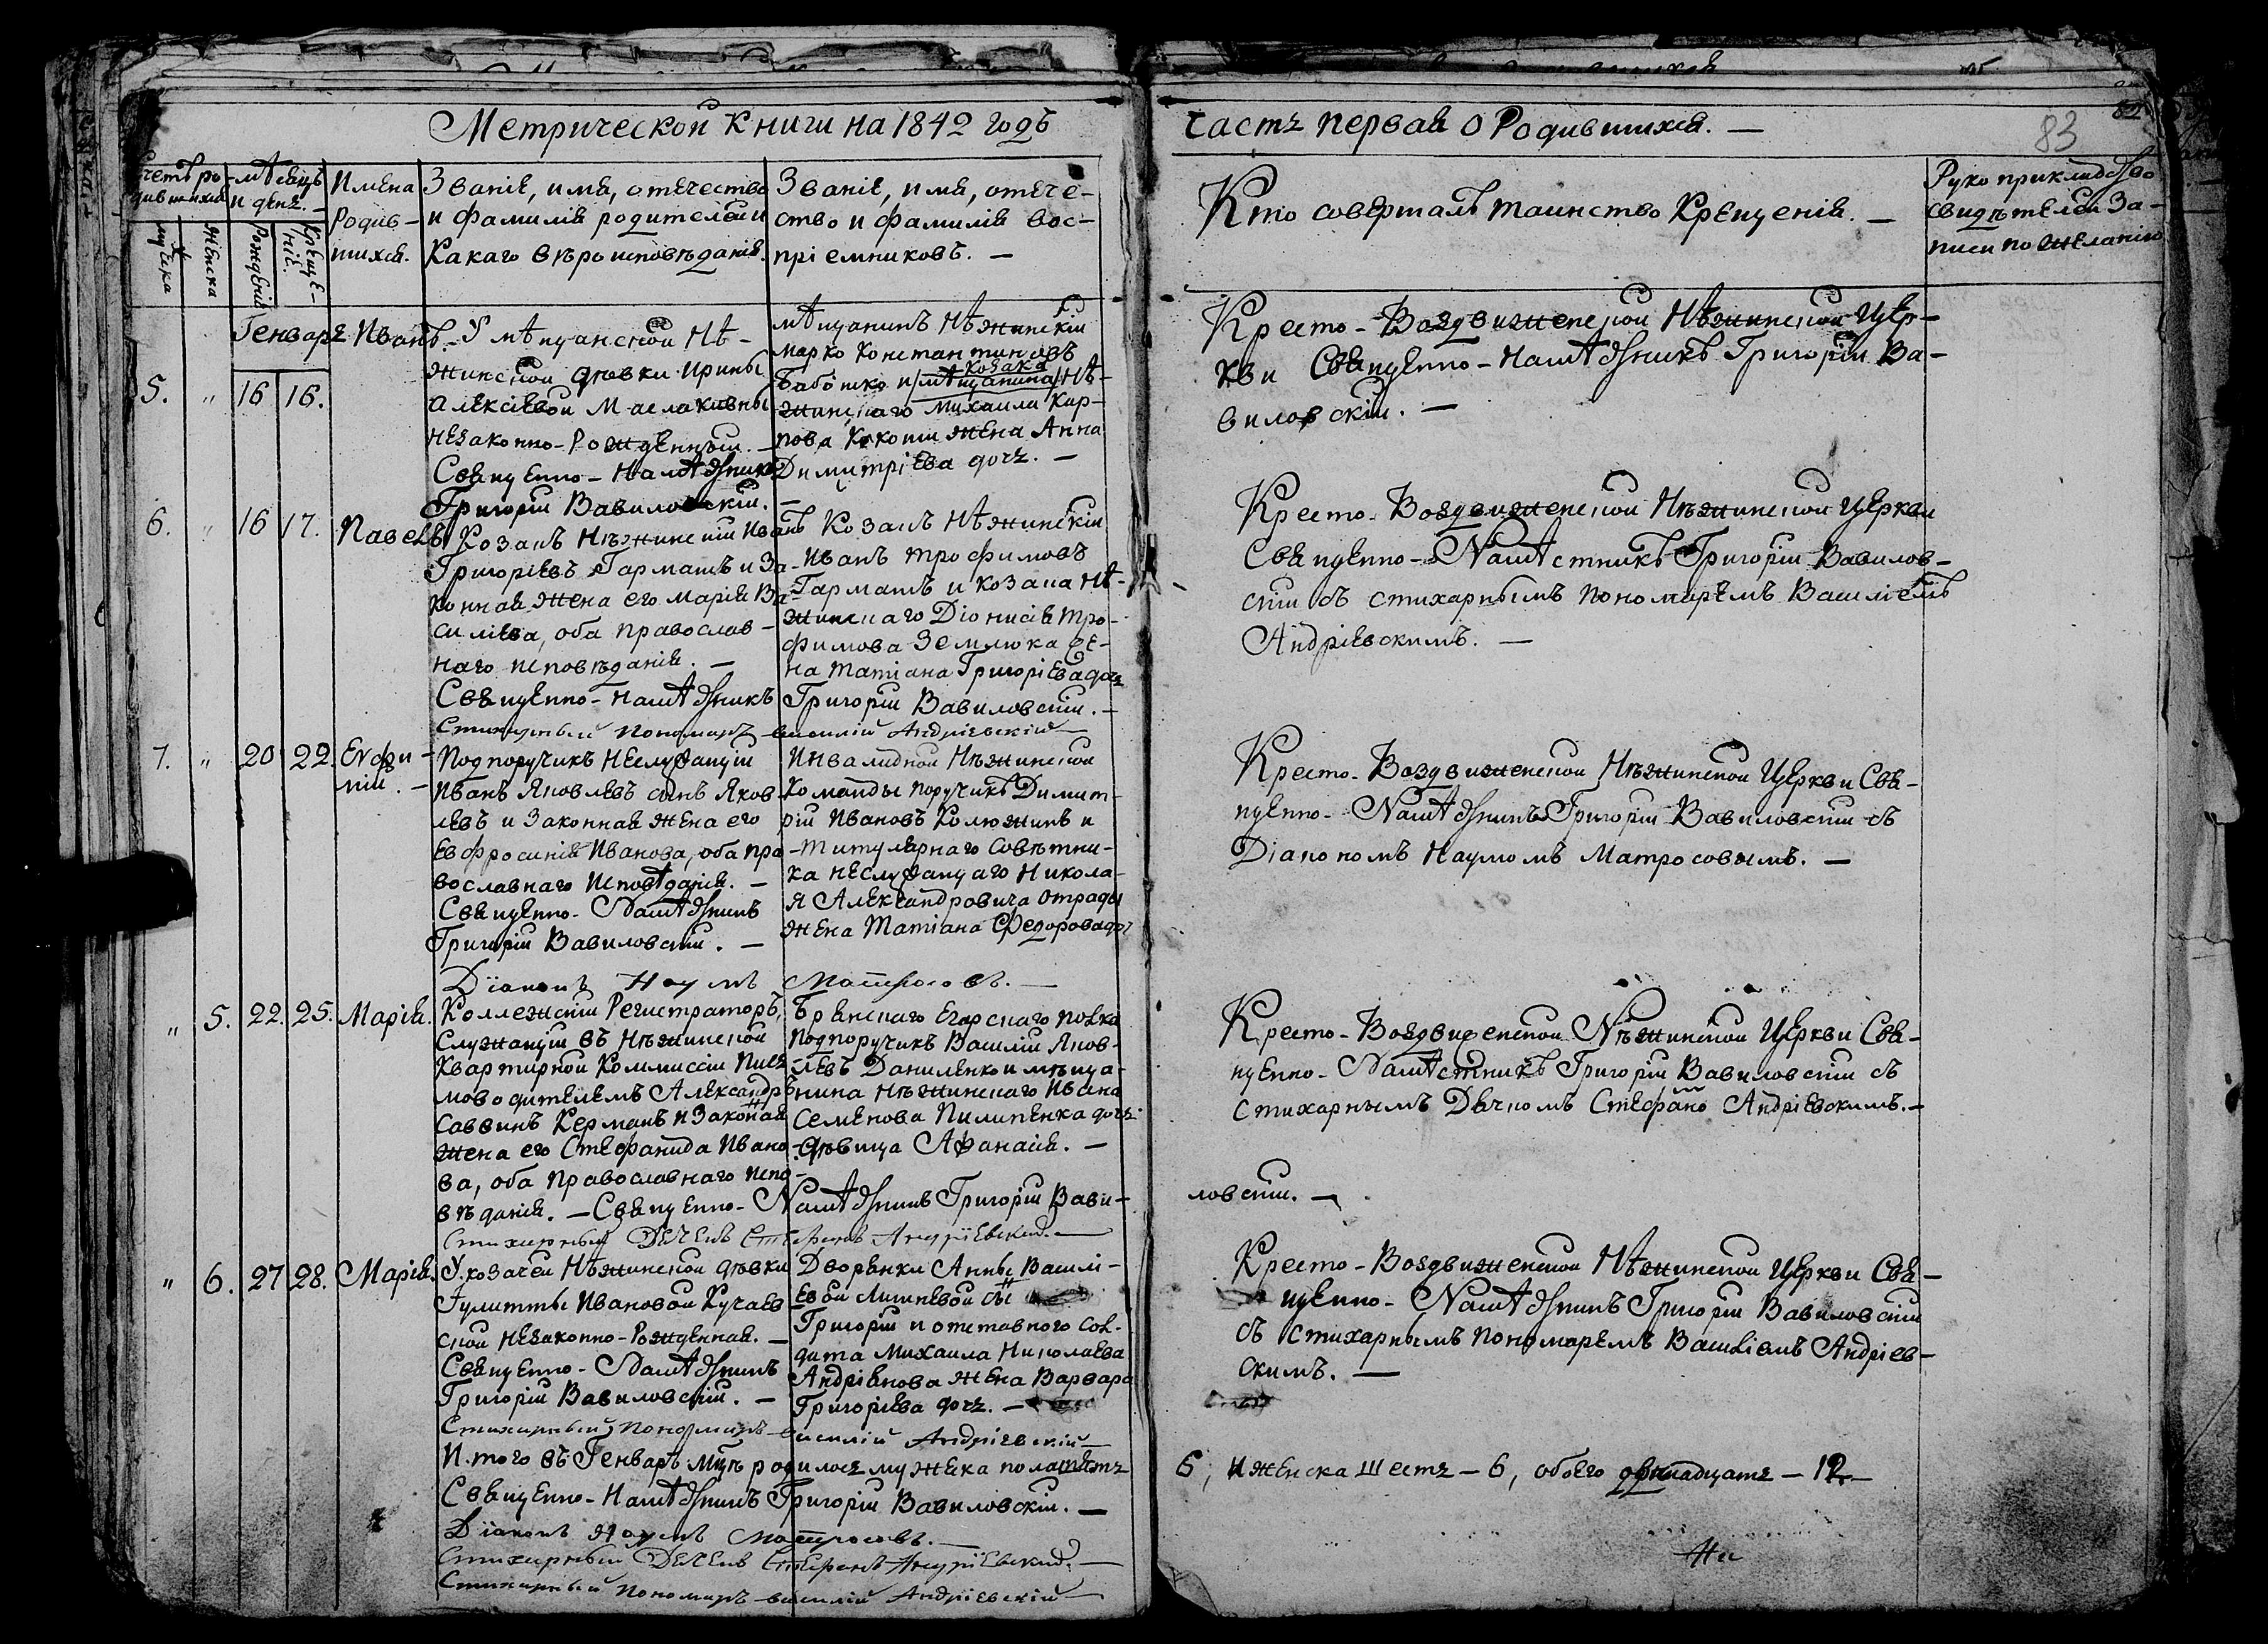 Метрической Книги на 1842 годъ
Часть первая о Родившихся. —
83
Счетъ ро-
дившихся
мужеска
женска
мѣсяцъ
и день.
Рожденіе
Креще-
ніе.
Имена
Родив-
шихся.
Званіе, имя, отечество
и фамилія родителей и
Какаго вѣроисповѣданія.
Званіе, имя, отече-
ство и фамилія вос-
пріемниковъ. —
Кто совершалъ таинство Крещенія. —
Рукоприкладство
свидѣтелей за-
писи по желанію
Генварь
5. " 16 16.
Иванъ.
У мѣщанской Нѣ-
жинской дѣвки Ирины
Алексіевой Маслаковны
незаконно-Рожденный. —
Священно-Намѣстникъ
Григорій Вавиловскій. —
мѣщанинъ Нѣжинскій
марко Константиновъ
козака
Бабошко и /мѣщанина/ Нѣ-
жинскаго Михаила Кар-
пова жена Анна
Димитріева дочь. —
Кресто-Воздвиженской Нѣжинской Цер-
кви Священно-Намѣстникъ Григорій Ва-
виловскій. —
6. " 16 17.
Павелъ
Козакъ Нѣжинскій Иванъ
Григоріевъ Гармашъ и За-
конная жена его Марія Ва-
силіева, оба православ-
наго исповѣданія. —
Козакъ Нѣжинскій
Иванъ Трофимовъ
Гармашъ и козака Нѣ-
жинскаго Діонисія Тро-
фимова Землюка же-
на Татіана Григоріева дочь
Священно-Намѣстникъ Григорій Вавиловскій. —
Стихарный Пономарь Василій Андріевскій —
Кресто-Воздвиженской Нѣжинской Церкви
Священно-Намѣстникъ Григорій Вавилов-
скій съ стихарнымъ пономаремъ Василіемъ
Андріевскимъ. —
7. " 20 22.
Евфи-
мій. —
Подпоручикъ Неслужащій
Иванъ Яковлевъ сынъ Яков-
левъ и Законная жена его
Евфросинія Иванова, оба пра-
вославнаго Исповѣданія. —
Священно-Намѣстникъ
Григорій Вавиловскій. —
Инвалидной Нѣжинской
Команды поручикъ Димит-
рій Ивановъ Колюжинъ и
Титулярнаго Совѣтни-
ка неслужащаго Никола-
я Александровича Отрады
жена Татіана Федорова доч
Діаконъ Наумъ Матросовъ. —
Кресто-Воздвиженской Нѣжинской Церкви Свя-
щенно-Намѣстникъ Григорій Вавиловскій съ
Діакономъ Наумомъ Матросовымъ. —
" 5. 22. 25.
Марія.
Коллежскій Регистраторъ,
служащій въ Нѣжинской
Квартирной Коммиссіи Пись-
моводителемъ Александръ
Саввинъ Керманъ и Законная
жена его Стефанида Ивано-
ва, оба Православнаго Испо-
вѣданія. — Священно-Намѣстникъ Григорій Вави-
ловскій. —
Стихарный Дьячекъ Стефанъ Андріевскій. —
Брянскаго Егарскаго полка
Подпоручикъ Василій Яков-
левъ Даниленко и мѣща-
нина Нѣжинскаго Ивана
Семенова Пилипенка дочь
дѣвица Афанасія. —
Кресто-Воздвиженской Нѣжинской Церкви Свя-
щенно-Намѣстникъ Григорій Вавиловскій съ
Стихарнымъ Дячкомъ Стефано Андріевскимъ. —
" 6. 27 28.
Марія.
У козачей Нѣжинской дѣвки
Іулитты Ивановой Кучаев
ской незаконно-Рожденная. —
Священно-Намѣстникъ
Григорій Вавиловскій. —
Стихарный Пономарь Василій Андріевскій —
Дворянки Анны Василі-
евой сынъ
Григорій и отставного Сол-
дата Михаила Николаева
Андріянова жена Варвара
Григоріева дочь. —
Кресто-Воздвиженской Нѣжинской Церкви Свя-
щенно-Намѣстникъ Григорій Вавиловскій
съ Стихарнымъ Пономаремъ Василіемъ Андріев-
скимъ. —
Итого въ Генварѣ мцѣ родилось мужеска пола
6, и женска шесть — 6, обоего двѣнадцать — 12 —
Священно-Намѣстникъ Григорій Вавиловскій. —
Діаконъ Наумъ Матросовъ. —
Стихарный Дьячекъ Стефанъ Андріевскій. —
Стихарный Пономарь Василій Андріевскій —